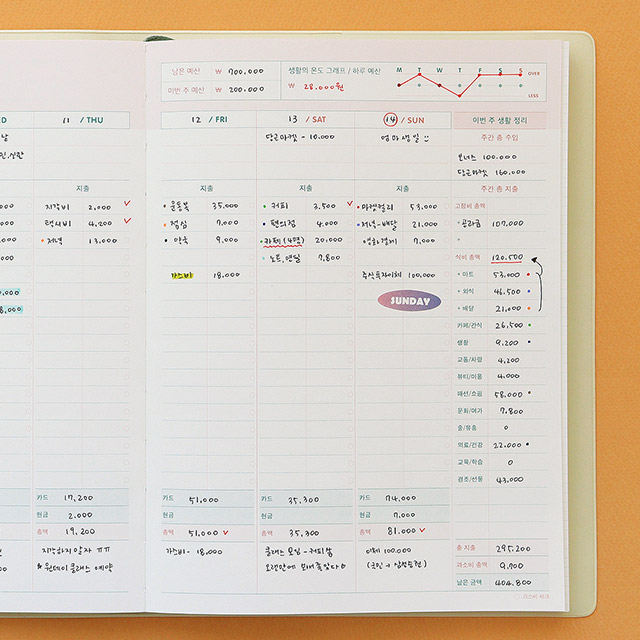 남은 예산 ₩ 700,000
이번 주 예산 ₩ 200,000
생활의 온도 그래프 / 하루 예산
₩ 28,000원
M T W T F S S
OVER
LESS
ED
11 / THU
12 / FRI
13 / SAT
14 / SUN
이번 주 생활 정리
당근마켓 - 10,000
엄마생일
주간 총 수입
보너스 100,000
당근마켓 160,000
지출
지출
지출
지출
주간 총 지출
2,000
택시비 4,200
저녁 13,000
운동복 35,000
점심 7,000
약국 9,000
과소비 18,000
커피 3,500
편의점 4,000
카페 (4명) 20,000
노트, 펜딜 7,800
마켓컬리 53,000
저녁-배달 21,000
영화결제 7,000
주식 옥자이체 100,000
SUNDAY
고정비 총액
공과금 107,000
식비 총액 120,500
마트 53,000
외식 46,500
배달 21,000
카페/간식 26,500
생활 9,200
교통/차량 4,200
뷰티/미용 4,000
패션/쇼핑 58,000
문화/여가 7,800
술/유흥 0
의료/건강 22,000
교육/학습 0
경조/선물 43,000
카드 17,200
현금 2,000
총액 19,200
카드 51,000
현금
총액 51,000
카드 35,300
현금
총액 35,300
카드 74,000
현금 7,000
총액 81,000
지각하지 말자 ㅠㅠ
원데이클래스 예약
과소비 - 18,000
클래스 모임 - 커피 쏨
오랜만에 모여 좋았다
이체 100,000
총 지출 295,200
과소비 총액 9,700
남은 금액 404,800